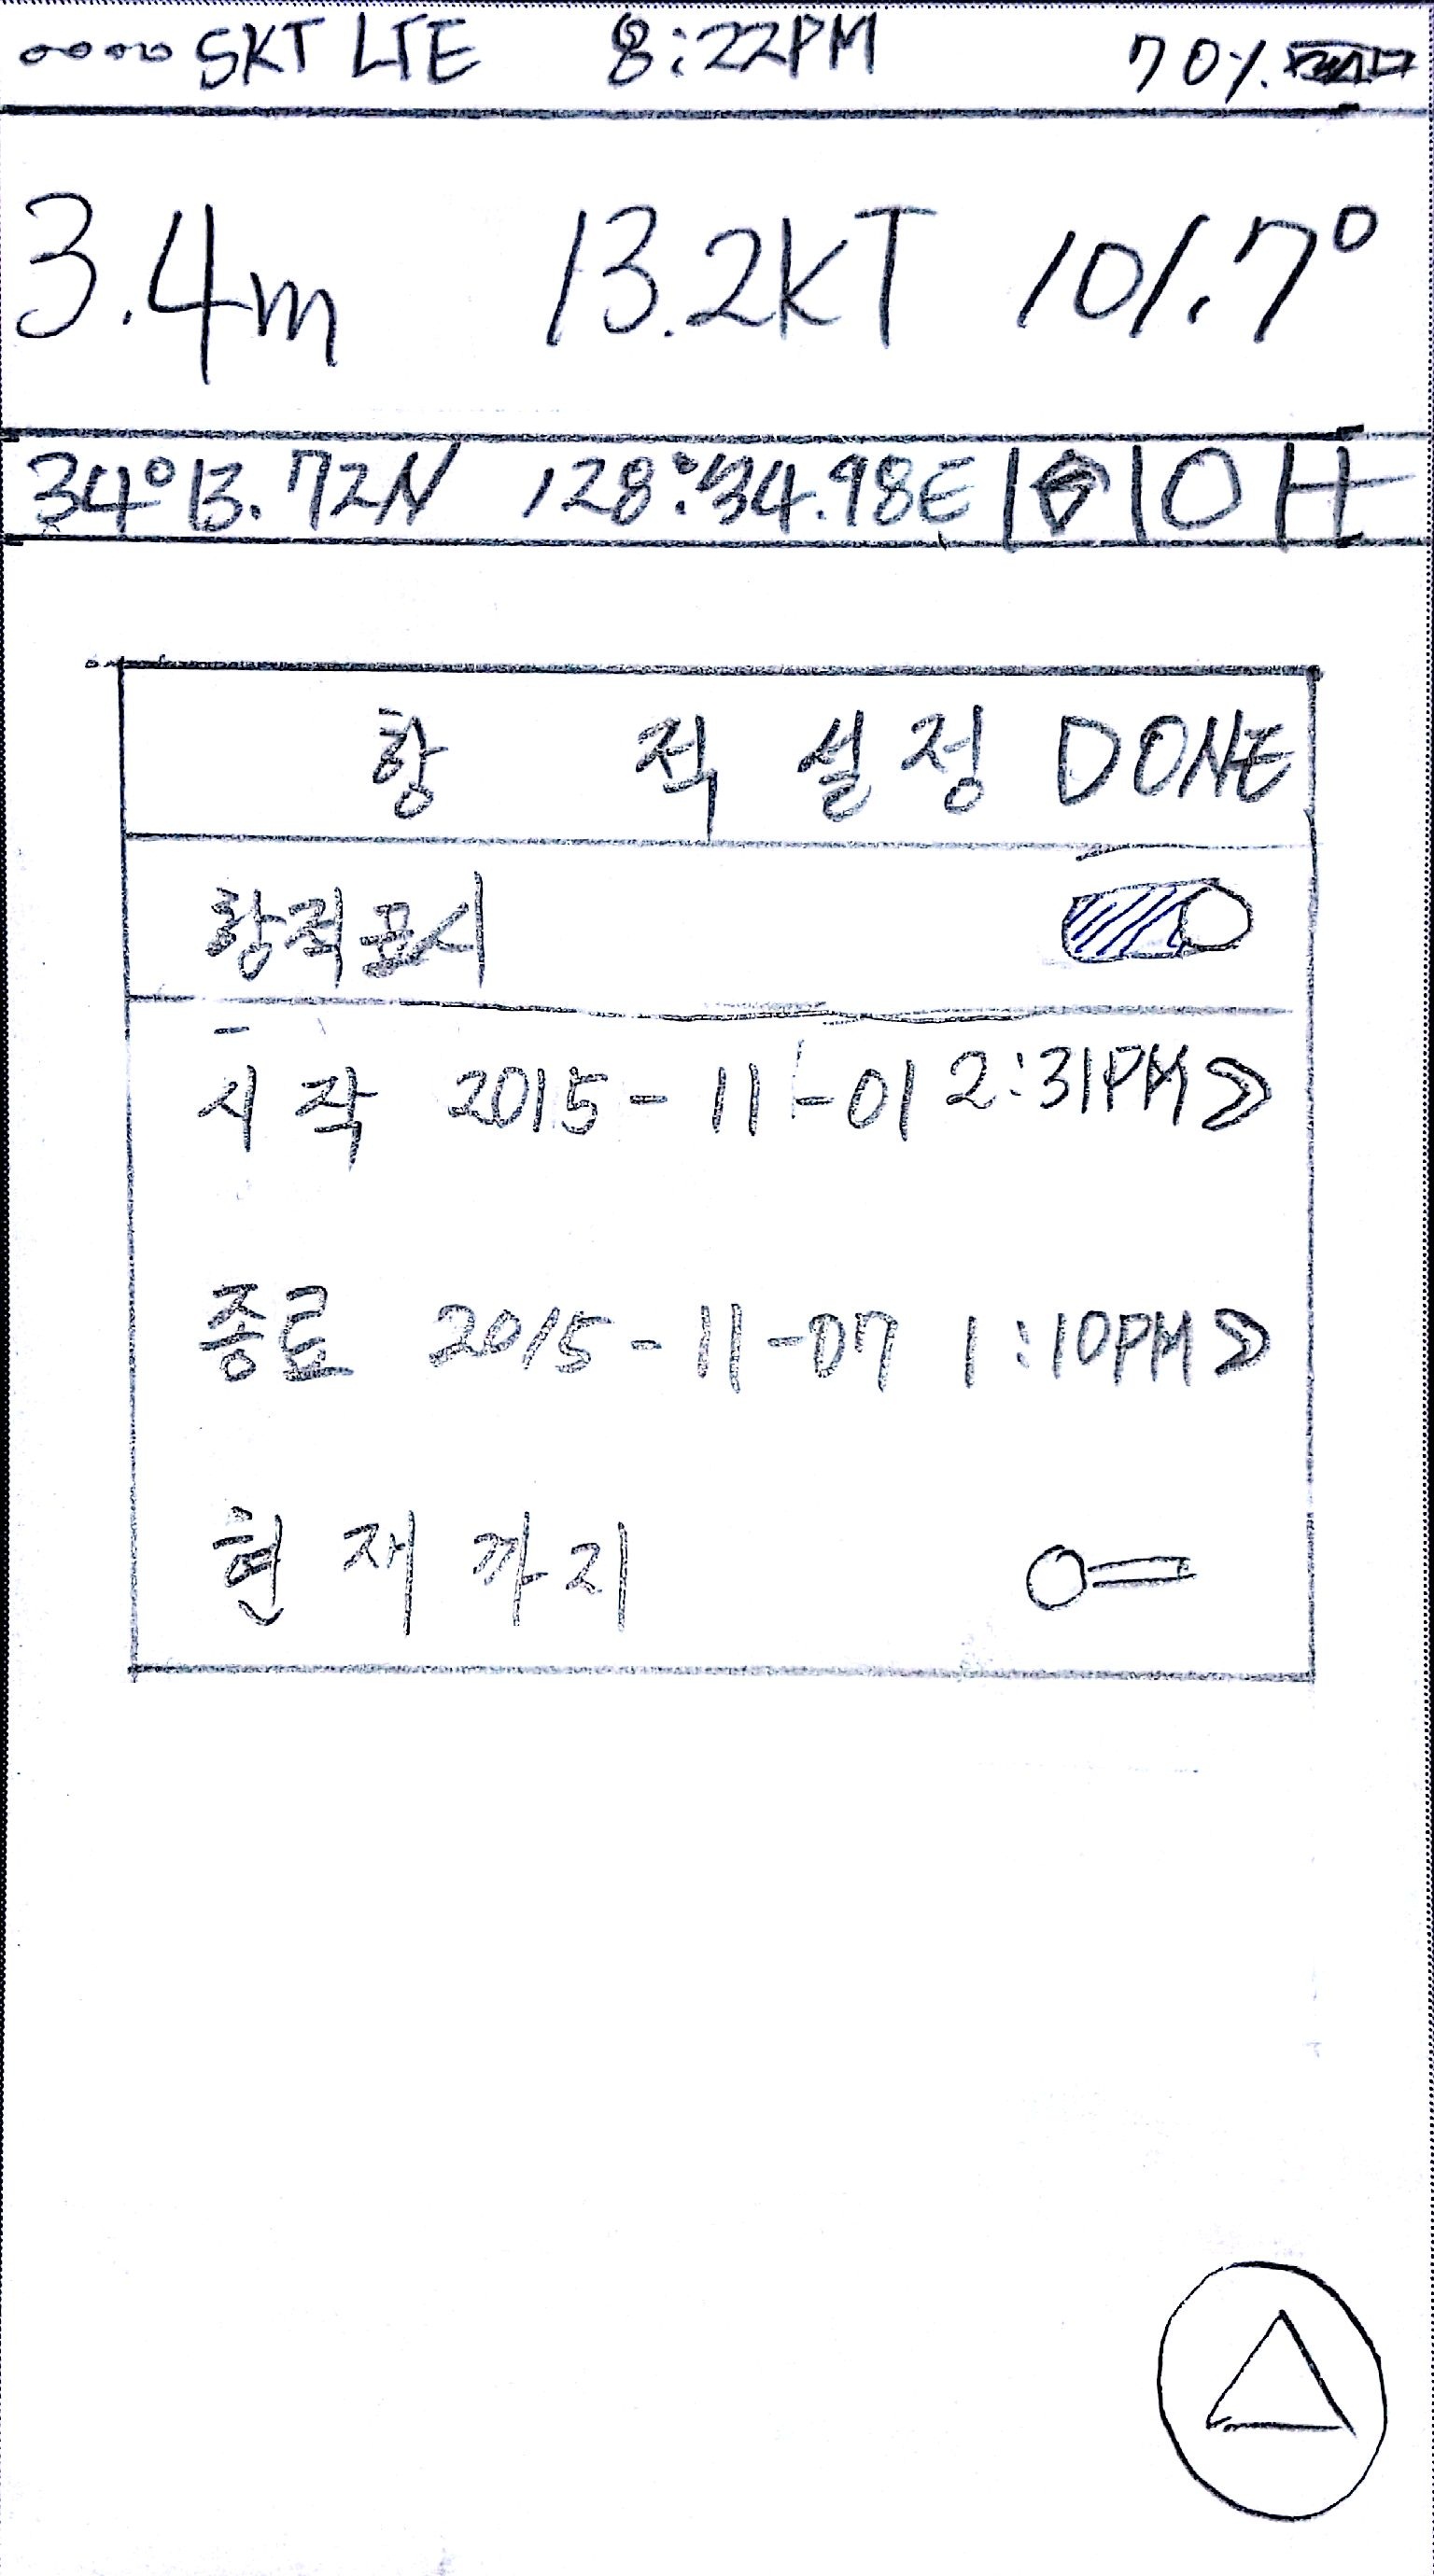 SKT LTE 8:22PM 70%
3.4m 13.2KT 101.7°
34°13.72N 128°34.98E
항 적 설 정 DONE
항적표시
시 작 2015-11-01 2:31PM >
종료 2015-11-07 1:10PM >
현 재 까 지